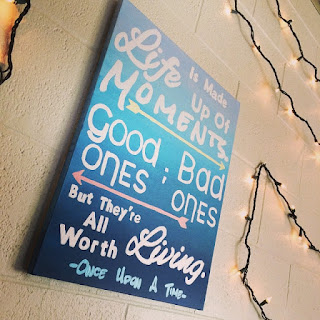 Life Is Made
up of
Moments,
Good ; Bad
ones ; ones
But They're
All
Worth Living.
-Once Upon A Time-